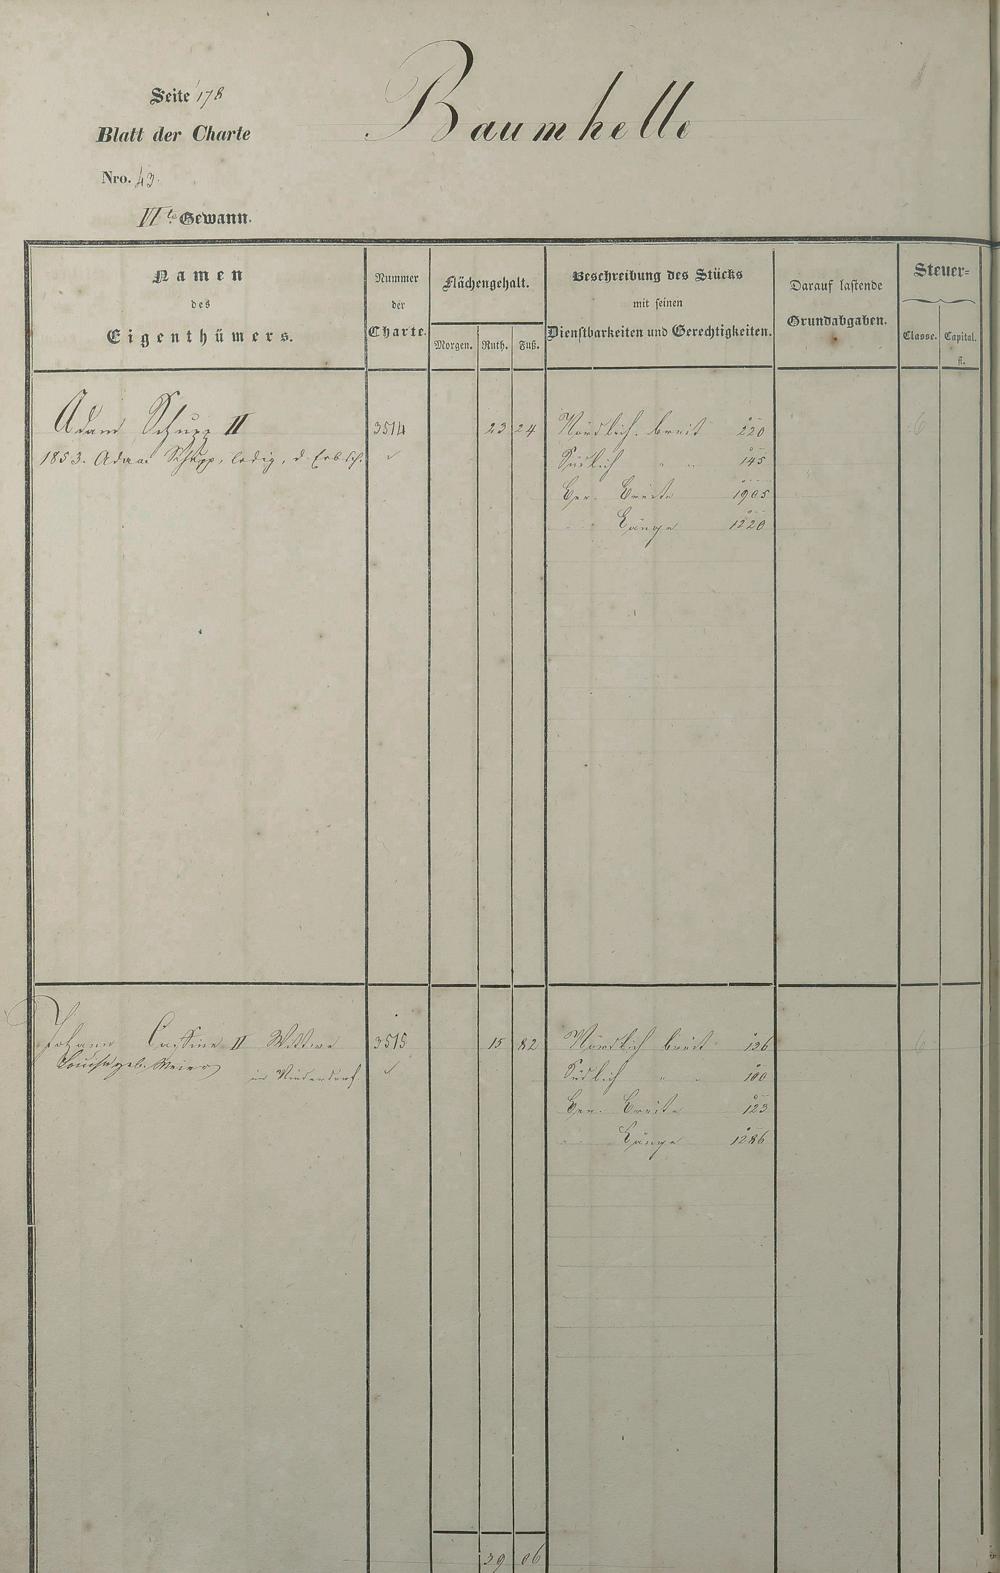 Seite 178
Baumhelle
Blatt der Charte
Nro. 43.
VIte Gewann.
Namen des Eigenthümers.
Nummer der Charte.
Flächengehalt.
Morgen. Ruth. Fuß.
Beschreibung des Stücks mit seinen Dienstbarkeiten und Gerechtigkeiten.
Darauf lastende Grundabgaben.
Steuer-
Classe. Capital.
fl.
Adam Schupp II 3514 23 24 Nördlich breit 220 6
1853. Adam Schupp, ledig, d. Erbsch. Südlich " " 145
Ger. Breite 1905
Länge 1220
Johann II Wittwe 3515 15 82 Nördlich breit 136 6
Louisa geb. Meier in Niederdorf Südlich " " 100
Ger. Breite 123
Länge 1286
39 06